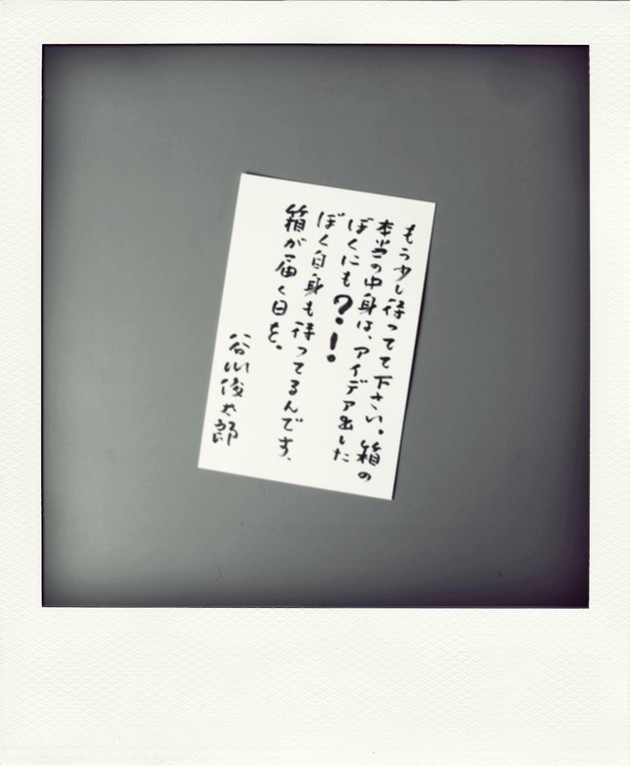 もう少し待ってて下さい。箱の
本当の中身は、アイデア出した
ぼくにも?!
ぼく自身も待ってるんです、
箱が届く日を。
谷川俊太郎